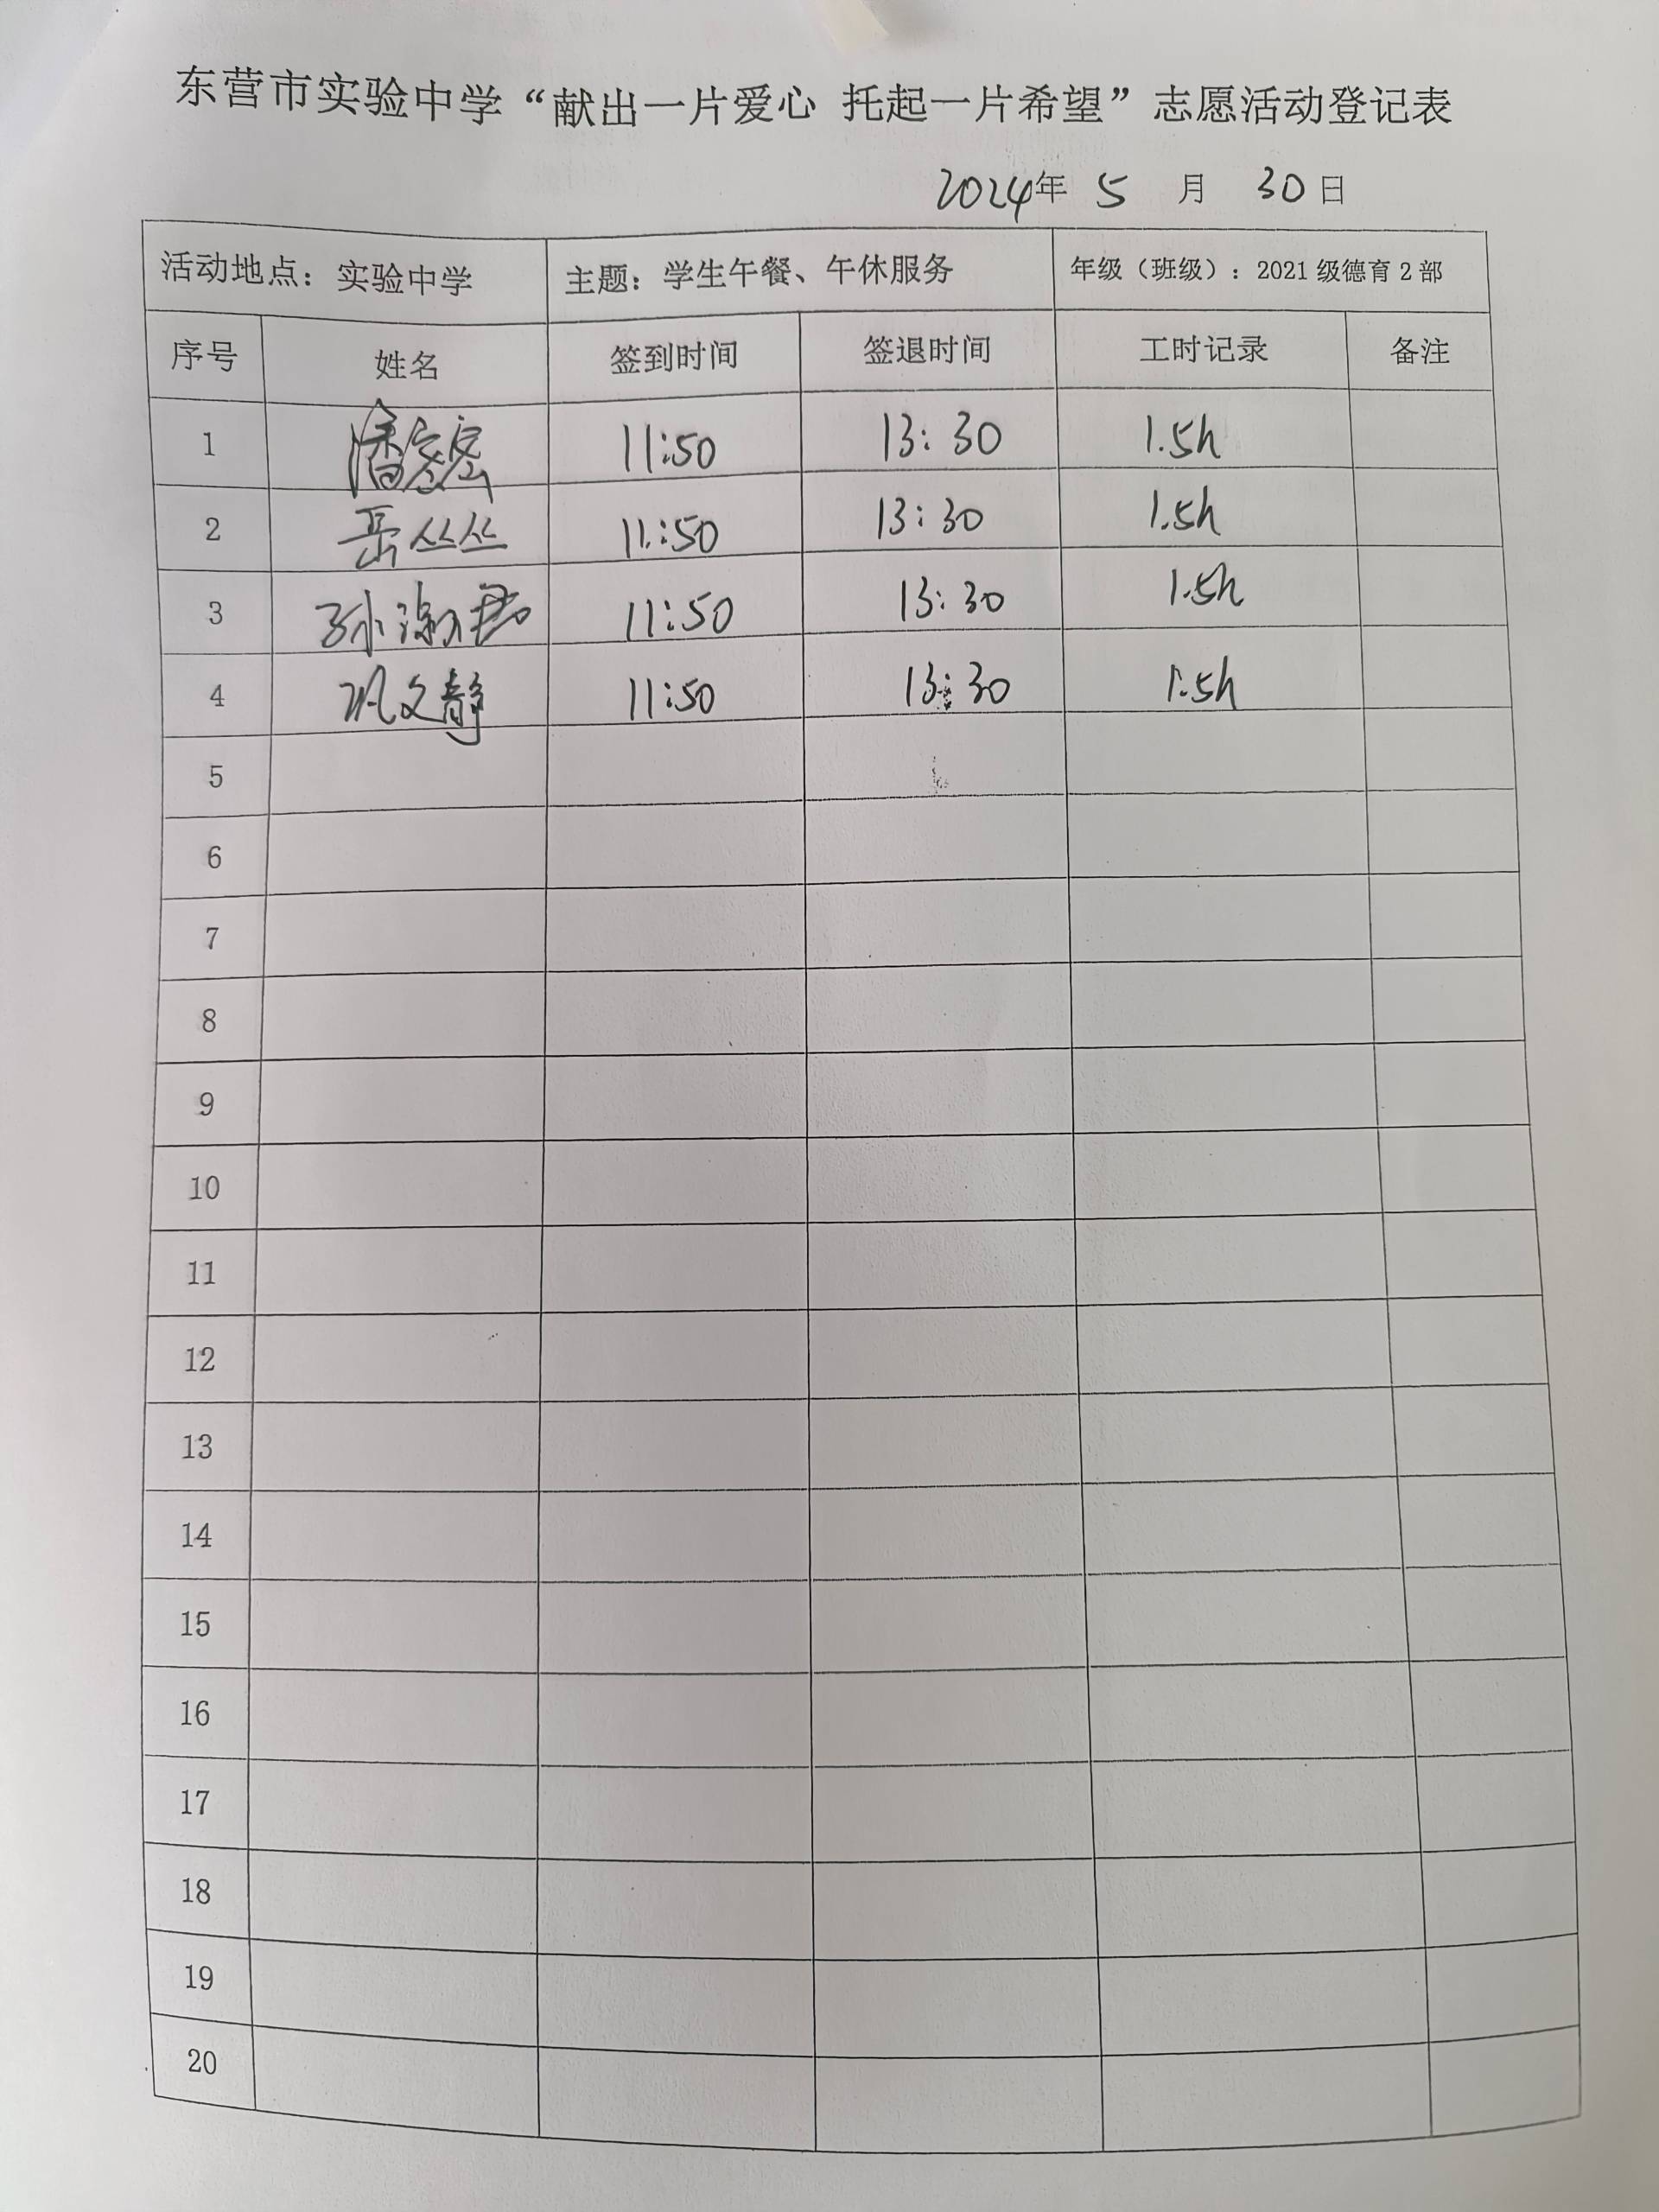 东营市实验中学“献出一片爱心 托起一片希望”志愿活动登记表
2024年 5 月 30日
活动地点：实验中学 主题：学生午餐、午休服务 年级（班级）：2021级德育2部
序号 姓名 签到时间 签退时间 工时记录 备注
1 潘密密 11:50 13:30 1.5h
2 岳丛丛 11:50 13:30 1.5h
3 孙淑君 11:50 13:30 1.5h
4 巩文静 11:50 13:30 1.5h
5
6
7
8
9
10
11
12
13
14
15
16
17
18
19
20